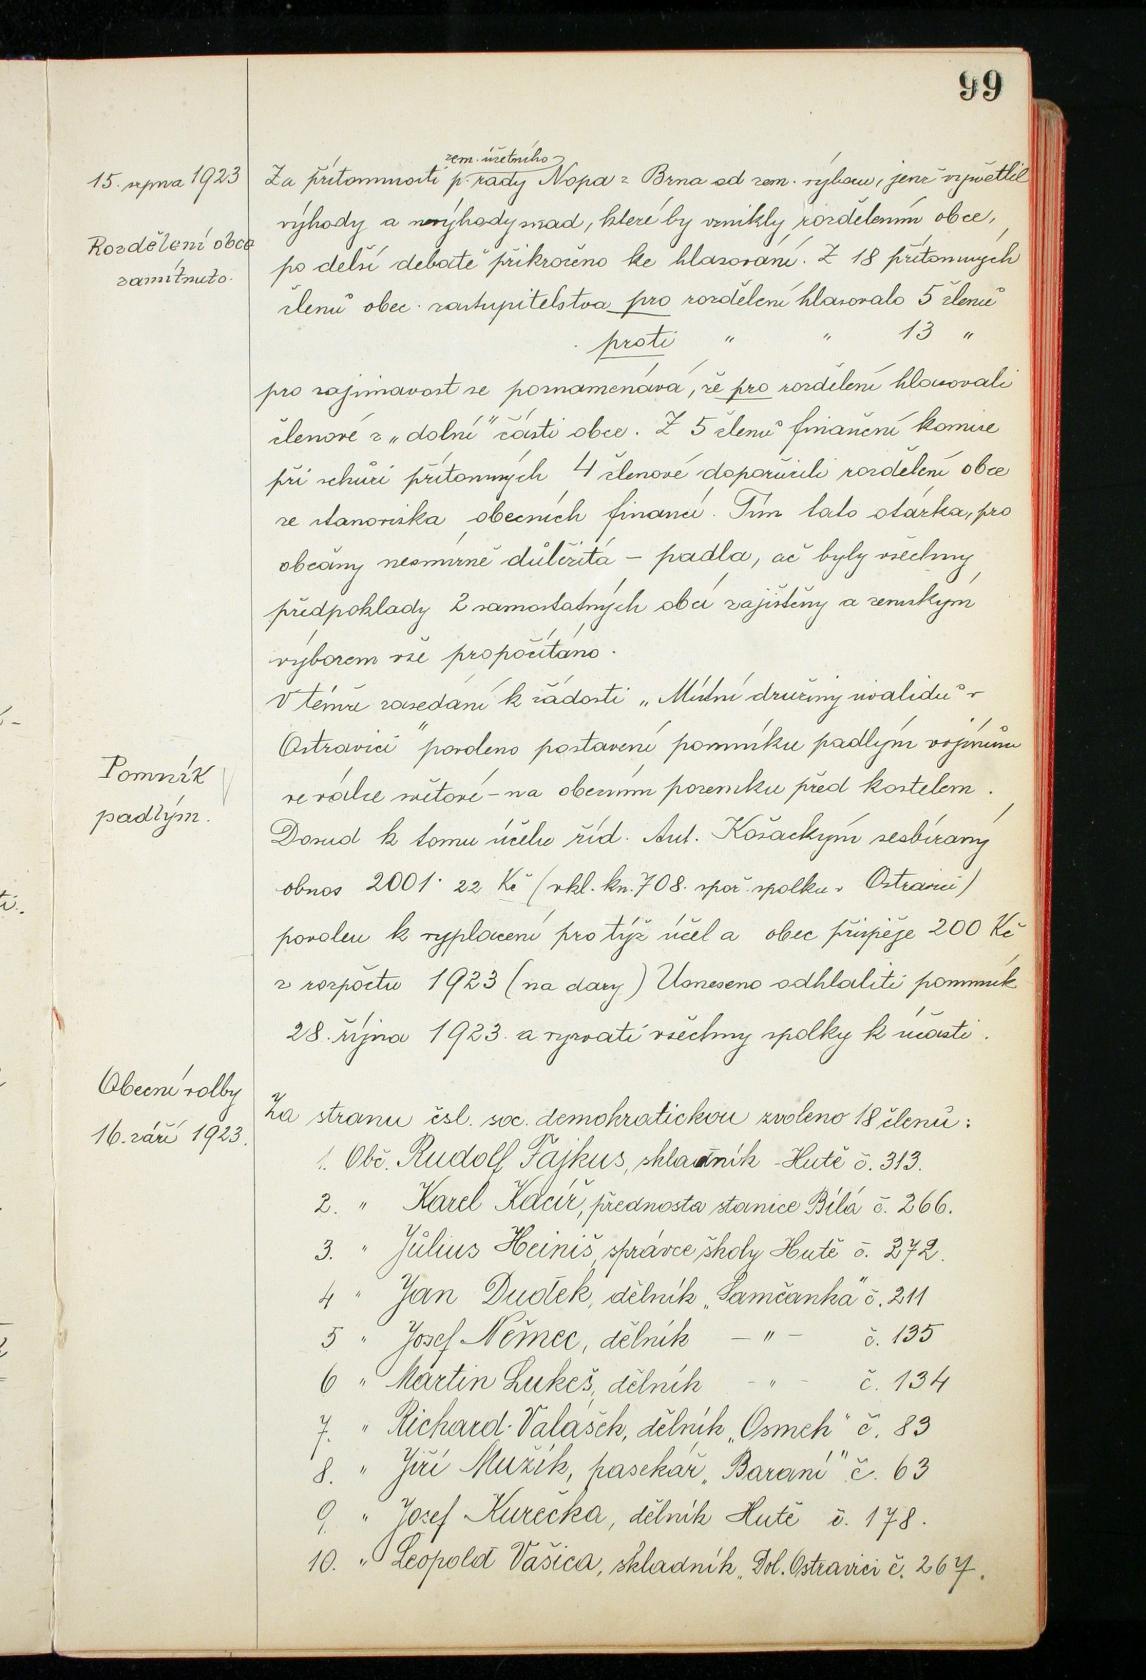 99
15. srpna 1923
Rozdělení obce
zamítnuto.
zem. účetního
Za přítomnosti p. rady Nopa z Brna od zem. výboru, jenž vysvětlil
výhody a nevýhody snad, které by vznikly rozdělením obce,
po delší debatě přikročeno ke hlasování. Z 18 přítomných
členů obec. zastupitelstva pro rozdělení hlasovalo 5 členů
proti " " 13 "
pro zajímavost se poznamenává, že pro rozdělení hlasovali
členové z „dolní" části obce. Z 5 členů finanční komise
při schůzi přítomných 4 členové doporučili rozdělení obce
ze stanoviska obecních financí. Tím tato otázka, pro
občany nesmírně důležitá – padla, ač byly všechny
předpoklady 2 samostatných obcí zajištěny a zemským
výborem vše propočítáno.
V témže zasedání k žádosti „Místní družiny invalidů v
Ostravici" povoleno postavení pomníku padlým vojínům
ve válce světové – na obecním pozemku před kostelem.
Pomník
padlým.
Dosud k tomu účelu říd. Ant. Košackým sesbíraný
obnos 2001·22 Kč (vkl. kn. 708. spoř. spolku v Ostravici)
povolen k vyplacení pro týž účel a obec přispěje 200 Kč
z rozpočtu 1923 (na dary) Usneseno odhaliti pomník
28. října 1923. a vyzvati všechny spolky k účasti.
Obecní volby
16. září 1923.
Za stranu čsl. soc. demokratickou zvoleno 18 členů:
1. Obč. Rudolf Fajkus, skladník - Hutě č. 313.
2. " Karel Kacíř, přednosta stanice Bílá č. 266.
3. " Július Heiniš, správce školy Hutě č. 272.
4 " Jan Dudek, dělník „Samčanka" č. 211
5 " Josef Němec, dělník – " – č. 135
6 " Martin Lukeš, dělník - " - č. 134
7. " Richard Valášek, dělník „Osmek" č. 83
8. " Jiří Mužík, pasekář „Baraní" č. 63
9. " Josef Kurečka, dělník Hutě č. 178.
10. " Leopold Vašica, skladník „Dol. Ostravici č. 267.